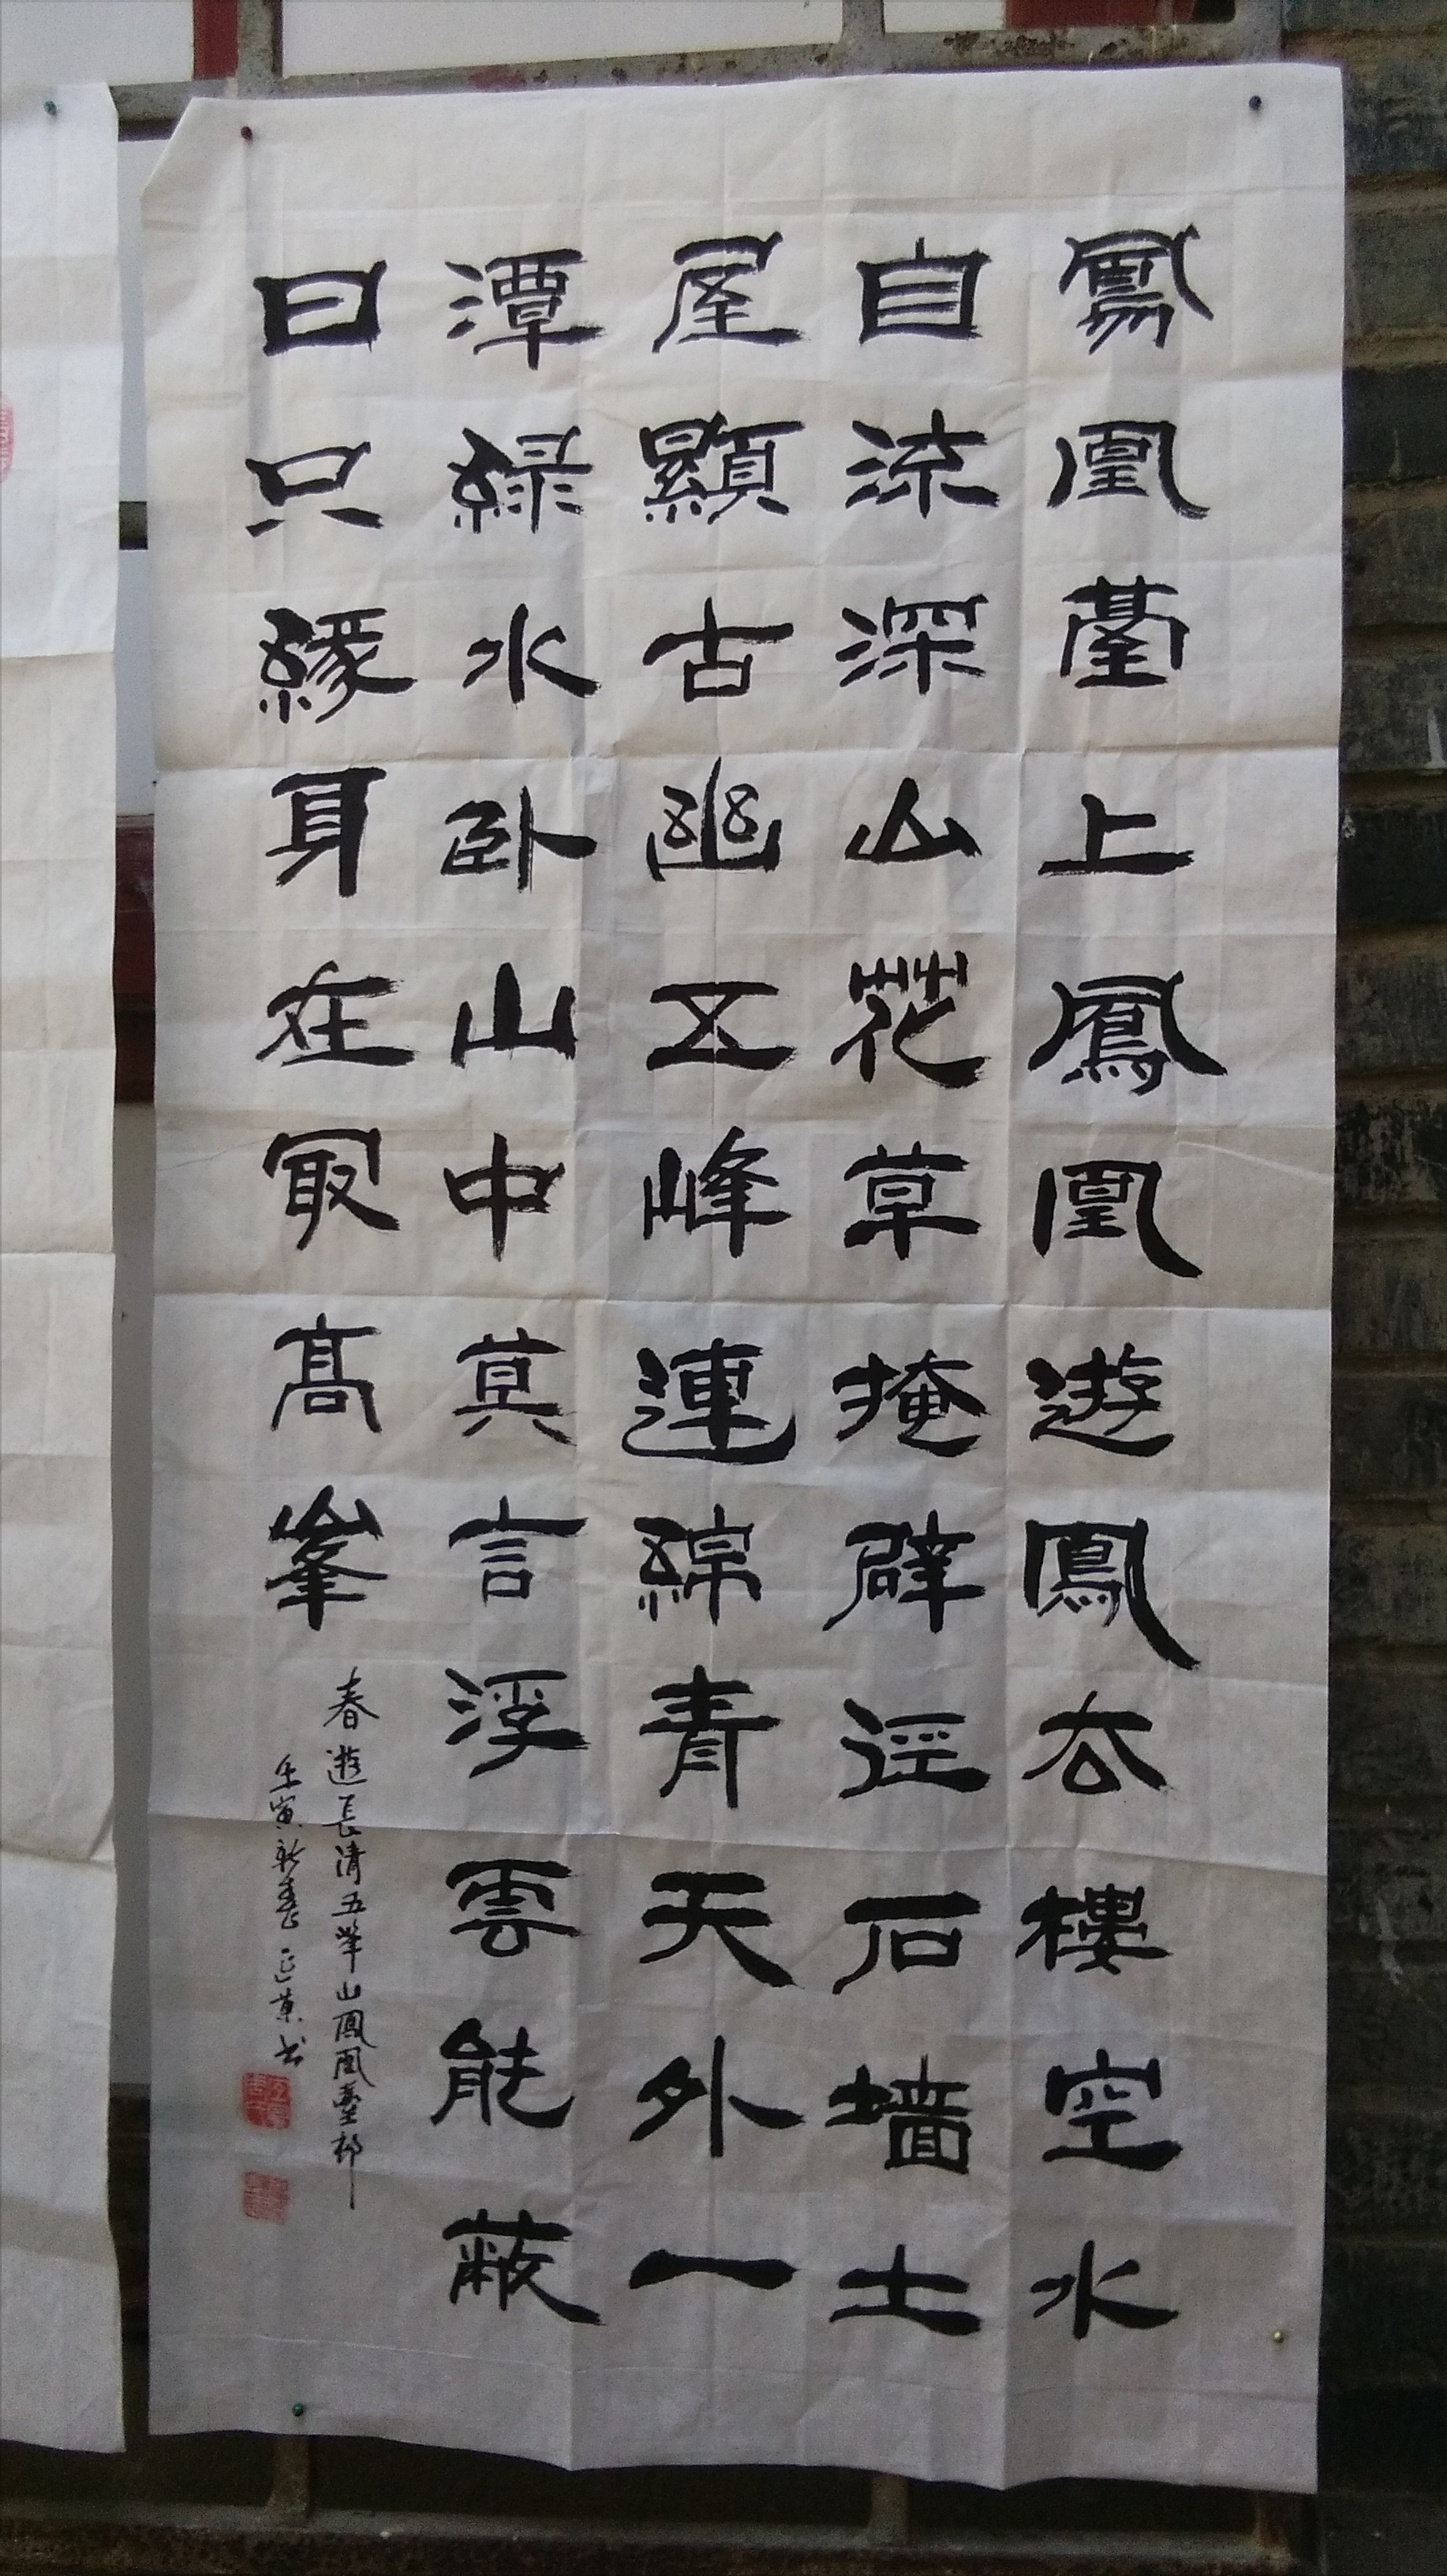 鳳凰臺上鳳凰遊鳳去樓空水
自流深山花草掩辟逕石墙土
屋顯古幽五峰連綿青天外一
潭緑水卧山中莫言浮雲能蔽
日只緣身在最高峯
春遊長清五峯山鳳凰臺邨
壬寅新春
书